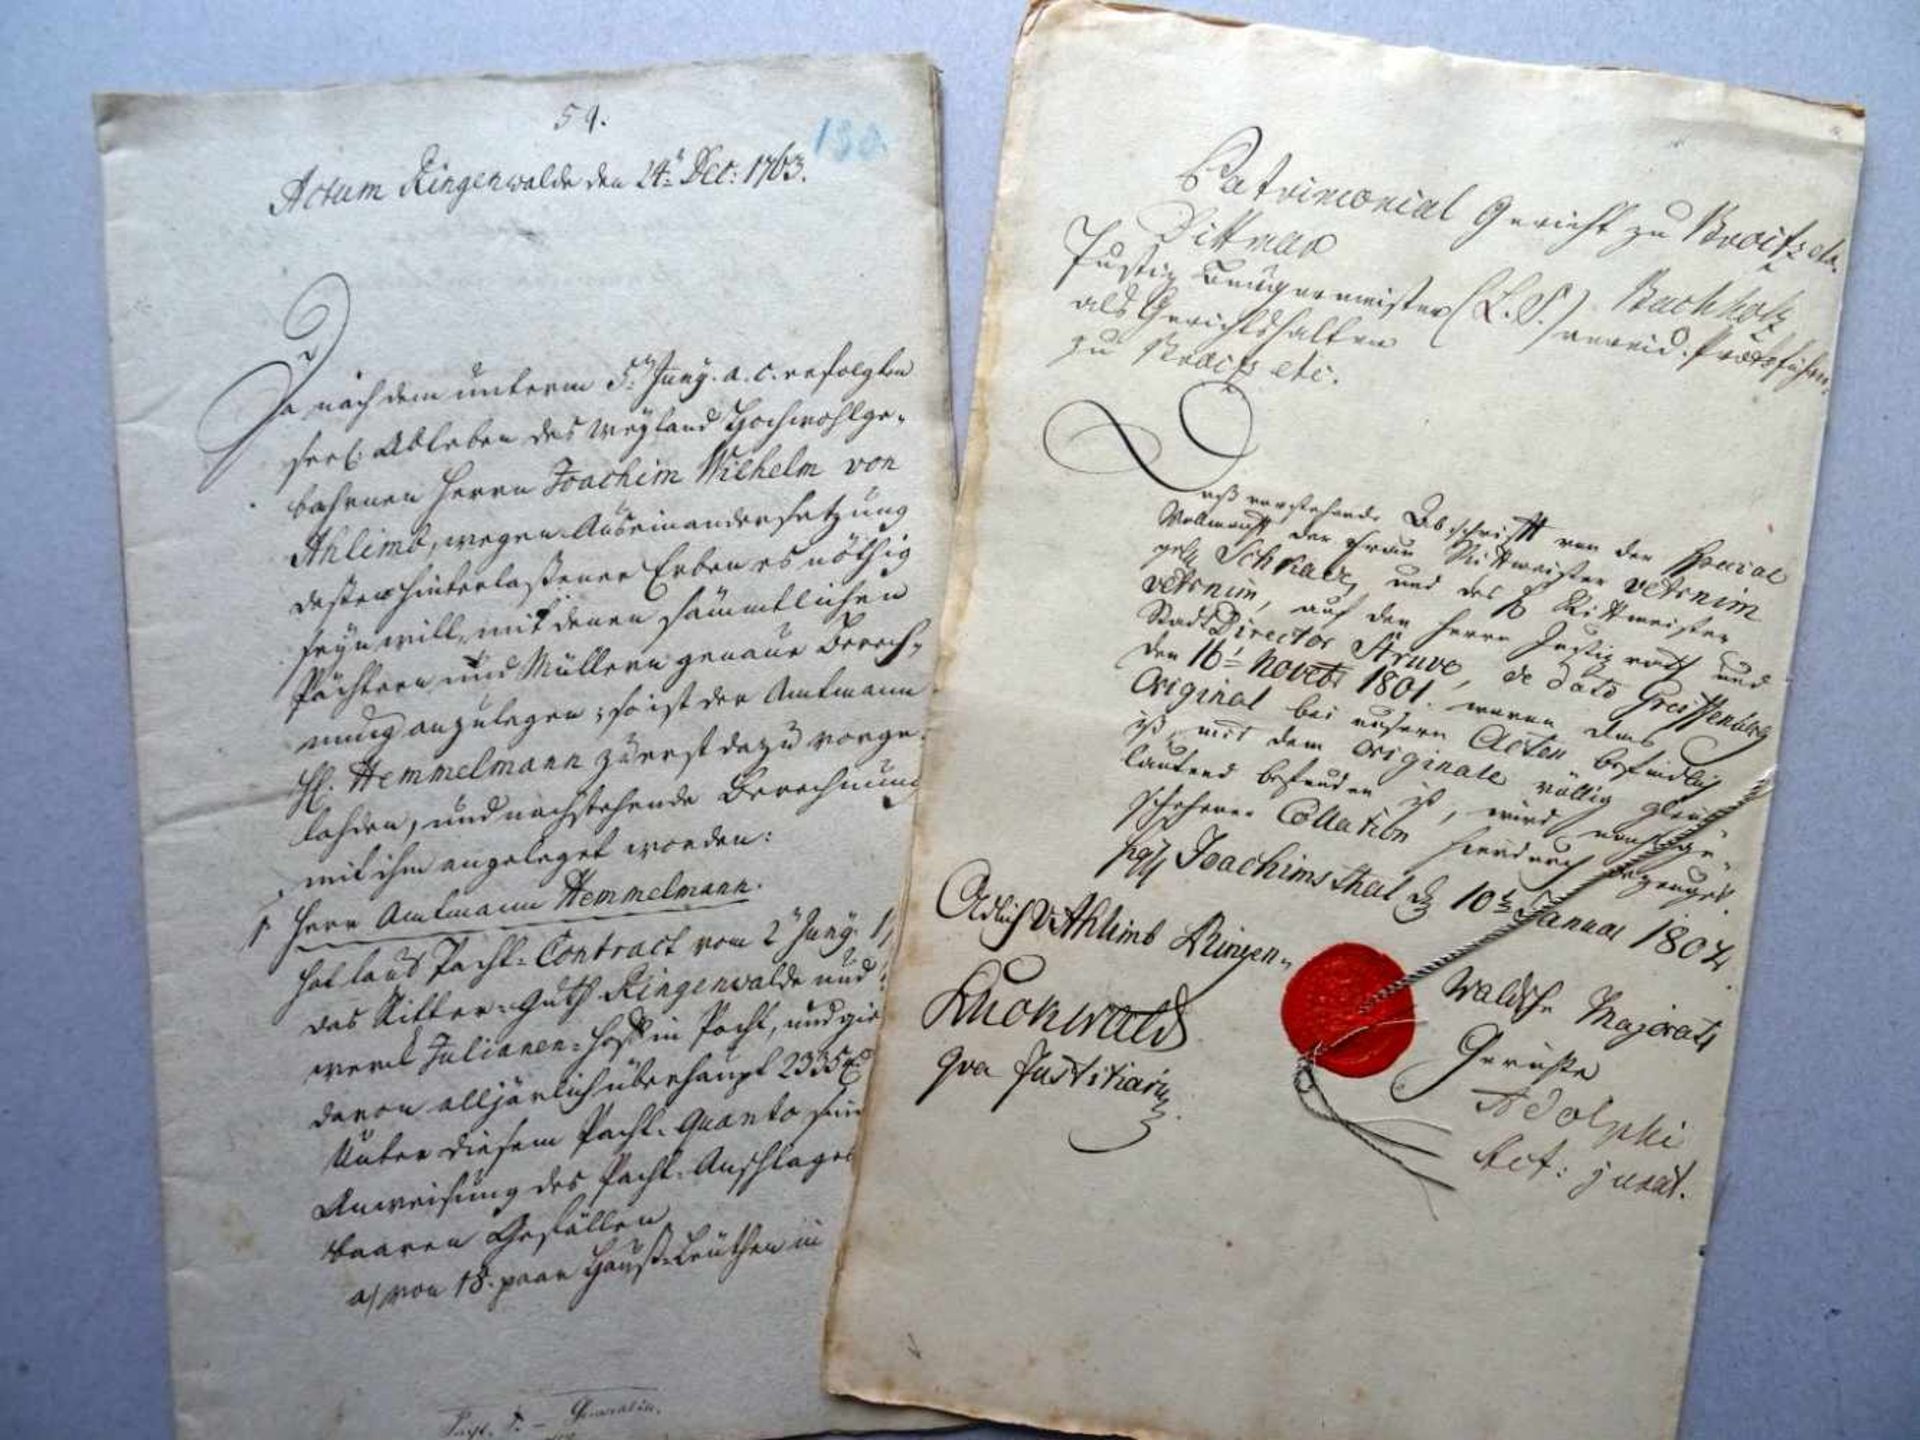 59.
130.
Actum Ringenwalde den 24t Dec: 1763.
Da nach dem unterm 5ten Juny. a. c. erfolgten
seel. Ableben des weyland Hochwohlge-
bohrnen Herrn Joachim Wilhelm von
Ahlimb, wegen Auseinandersetzung
deßen hinterlaßener Erben es nöthig
seyn will, mit denen sämmtlichen
Pächtern und Müllern genaue Berech-
nung anzulegen; so ist der Amtmann
H. Hemmelmann zuerst dazu vorge-
lahden, und nachstehende Berechnung
mit ihm angeleget worden:
1. Herr Amtmann Hemmelmann.
hat laut Pacht-Contract vom 2t Juny. 1
das Ritter-Guth Ringenwalde und
werck Julianen-Hoff in Pacht, und gie
davon alljärlich überhaupt 2335 rt
Unter diesem Pacht-Quanto sin
Anweisung des Pacht-Anschlages
baaren Gefällen
a/ von 18. paar Hauß-Leuthen in
Patrimonial Gericht zu Kroitz etc.
Dittmar
Justiz Bürgermeister (L. S.) Buchholz
als Gerichtshalter vereid. Protfführer
zu etc.
Daß vorstehende Abschrift von der Special
Vollmacht der Frau Rittmeister v Arnim
geb Schrader und des H Rittmeister
v Arnim, auf den Herrn Justizrath und
Stadt Director Struve, de dato Greiffenberg
den 16t Novbr 1801. wovon das
Original bei unsern Acten befindlich
ist, mit dem Originale völlig gleich
lautend befunden ist, wird nach ge-
schehener Collation hierdurch bezeuget.
sigl Joachimsthal d 10t Januar 1804.
Adlich v Ahlimb Ringen-
waldsche Majorats
Gerichte
Kuckwald
qua Justitiarius.
Adolphi
Act: jurat.